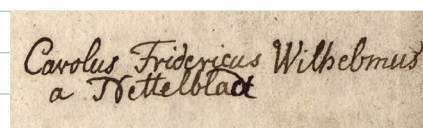 Carolus Fridericus Wilhelmus
a Nettelbladt